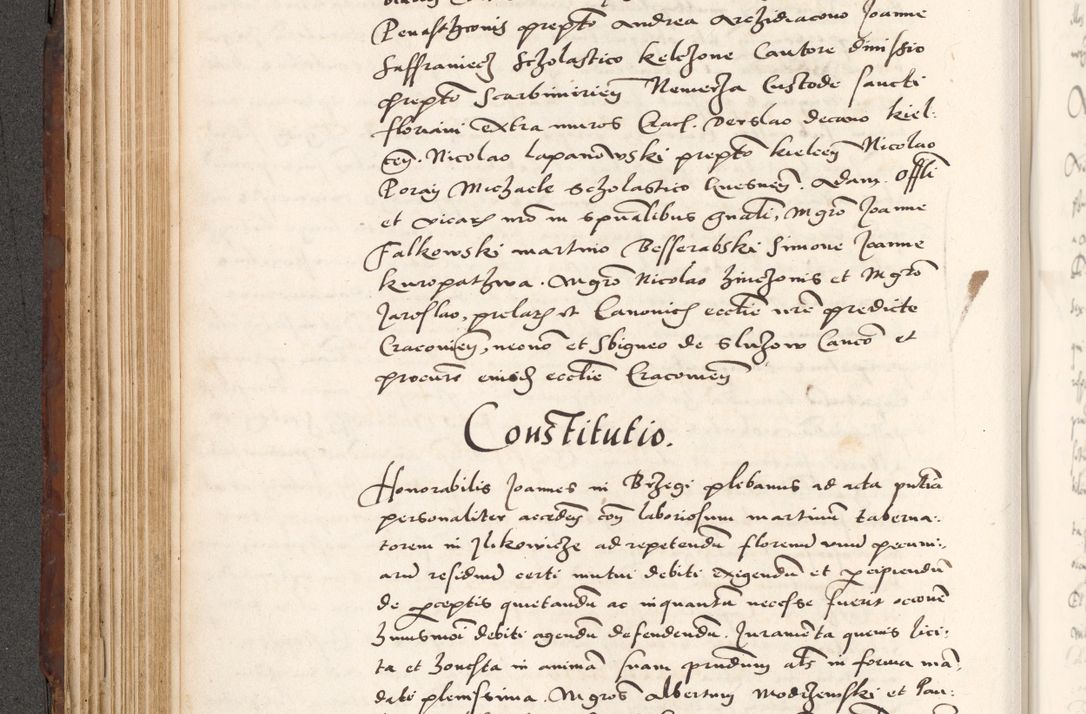 Penalizonis prepto Andrea Archidiacono Joanne
Saffraniecz Scholastico Kelczone Cantore Dinissio
prepto Scarbimirien Nemerza Custode sancti
floriani extra muros Crac. Derslao decano kiel-
cen. Nicolao Lapanowski prepto kielcen Nicolao
Poray Michaele Scholastico Gnesnen. Adam. Offli
et vicario nro in spualibus gnali, Mgro Joanne
Falkowski martino Besserabski Simone Joanne
kuropathwa. Mgro Nicolao et Mgro
Jaroslao, prelatis et Canonicis ecclie nre predicte
Cracovien, necno et Sbigneo de Sluzow Canco et
procure eiusd ecclie Cracovien
Constitutio.
Honorabilis Joannes in Brzegi plebanus ad acta pntia
personaliter acceden con laboriosum martinum taberna-
torem in Ilikowicze ad repetendu florenu unu pecuni-
aru residuu certi mutui debiti exigendu et percipiendu
de perceptis quietandu ac inquantu necesse fuerit occone
huiusmoi debiti agendu defendendu. Juramenta quevis lici-
ta et honesta in anima suam prestandum als in forma man-
dati plenissima. Mgros Albertum Modrzewski et Pau-